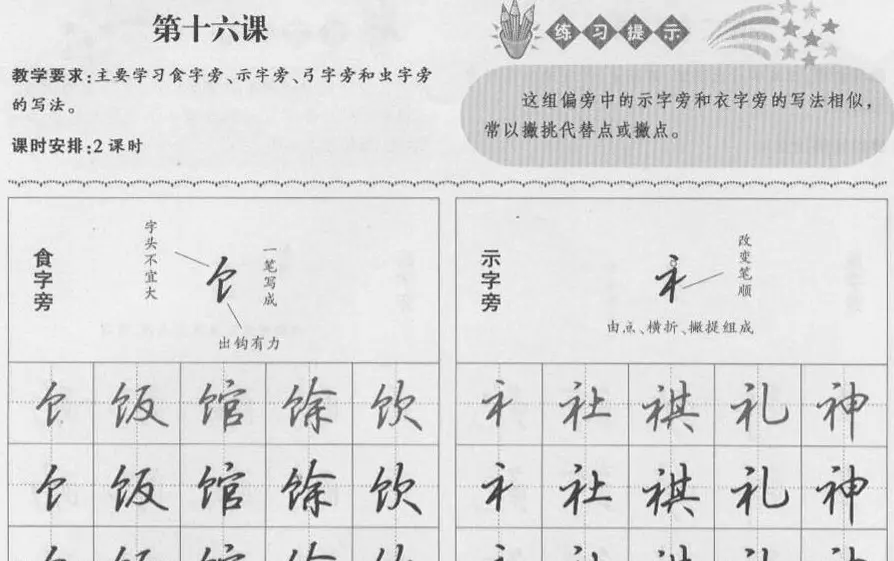 第十六课
教学要求:主要学习食字旁、示字旁、弓字旁和虫字旁
的写法。
课时安排:2课时
练习提示
这组偏旁中的示字旁和衣字旁的写法相似,
常以撇挑代替点或撇点。
食字旁
字头不宜大
饣
一笔写成
出钩有力
饣 饭 馆 馀 饮
饣 饭 馆 馀 饮
示字旁
礻
改变笔顺
由点、横折、撇提组成
礻 社 祺 礼 神
礻 社 祺 礼 神